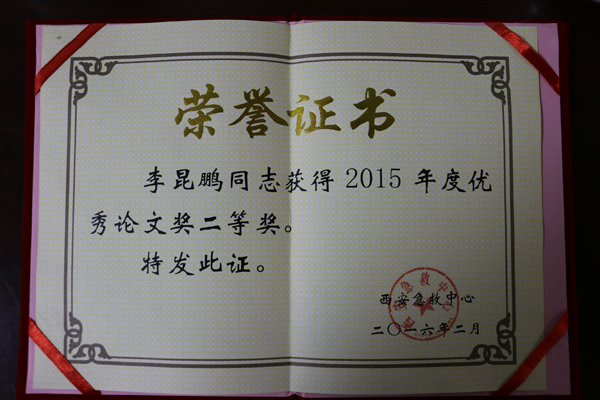 荣誉证书
李昆鹏同志获得 2015 年度优
秀论文奖二等奖。
特发此证。
西安急救中心
二〇一六年二月